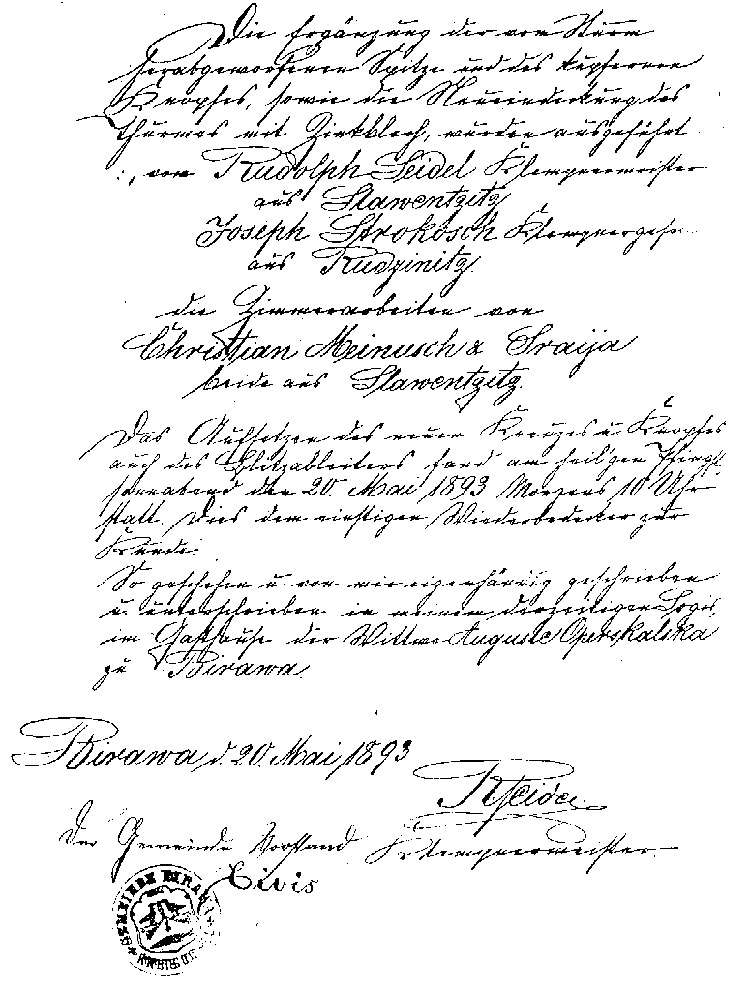 Die Ergänzung der vom Sturm
herabgeworfenen Spitze und des kupfernen
Knopfes, sowie die Neueindeckung des
Thurmes mit Zinkblech, wurden ausgeführt
:, von Rudolph Seidel Klempnermeister
aus Slawentzitz
Joseph Strokosch Klempnerges..
aus Rudzinitz
die Zimmerarbeiten von
Christian Meinusch & Sraija
beide aus Slawentzitz.
Das Aufsetzen des neuen Kreuzes u Knopfes
auch des Blitzableiters fand am heil'gen Pfingst
sonnabend den 20. Mai 1893 Morgens 10 Uhr
statt. Dies dem einstigen Wiederbedecker zur
Kunde.
So geschehen u von mir eigenhändig geschrieben
u. unterschrieben in meinem derzeitigen Logis,
im Gasthause der Wittwe Auguste Operskalska
zu Birawa.
Birawa, d. 20. Mai 1893
RSeidel
Der Gemeinde Vorstand Klempnermeister
Civis
GEMEINDE BIRAWA